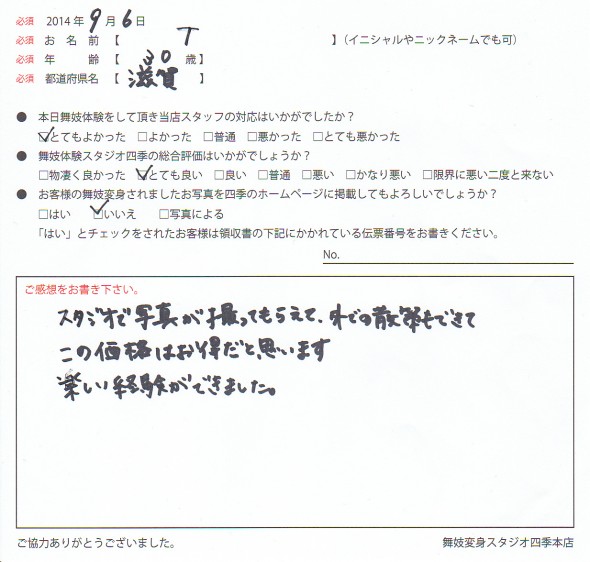 必須 2014年 9 月 6 日
必須 お 名 前 【 T 】(イニシャルやニックネームでも可)
必須 年 齢 【 30 歳】
必須 都道府県名 【 滋賀 】
● 本日舞妓体験をして頂き当店スタッフの対応はいかがでしたか?
☑とてもよかった □よかった □普通 □悪かった □とても悪かった
● 舞妓体験スタジオ四季の総合評価はいかがでしょうか?
□物凄く良かった ☑とても良い □良い □普通 □悪い □かなり悪い □限界に悪い二度と来ない
● お客様の舞妓変身されましたお写真を四季のホームページに掲載してもよろしいでしょうか?
□はい ☑いいえ □写真による
「はい」とチェックをされたお客様は領収書の下記にかかれている伝票番号をお書きください。
No.
ご感想をお書き下さい。
スタジオで写真が撮ってもらえて、外での散策もできて
この価格はお得だと思います
楽しい経験ができました。
ご協力ありがとうございました。 舞妓変身スタジオ四季本店